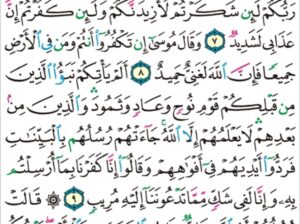 رَبُّكُمْ لَئِن شَكَرْتُمْ لَأَزِيدَنَّكُمْ وَلَئِن كَفَرْتُمْ إِنَّ
عَذَابِى لَشَدِيدٌ ٧ وَقَالَ مُوسَىٰٓ إِن تَكْفُرُوٓا۟ أَنتُمْ وَمَن فِى ٱلْأَرْضِ
جَمِيعًا فَإِنَّ ٱللَّهَ لَغَنِىٌّ حَمِيدٌ ٨ أَلَمْ يَأْتِكُمْ نَبَؤُا۟ ٱلَّذِينَ
مِن قَبْلِكُمْ قَوْمِ نُوحٍ وَعَادٍ وَثَمُودَ وَٱلَّذِينَ مِنۢ
بَعْدِهِمْ لَا يَعْلَمُهُمْ إِلَّا ٱللَّهُ جَآءَتْهُمْ رُسُلُهُم بِٱلْبَيِّنَـٰتِ
فَرَدُّوٓا۟ أَيْدِيَهُمْ فِىٓ أَفْوَٰهِهِمْ وَقَالُوٓا۟ إِنَّا كَفَرْنَا بِمَآ أُرْسِلْتُم
بِهِۦ وَإِنَّا لَفِى شَكٍّ مِّمَّا تَدْعُونَنَآ إِلَيْهِ مُرِيبٍ ٩ ۞ قَالَتْ